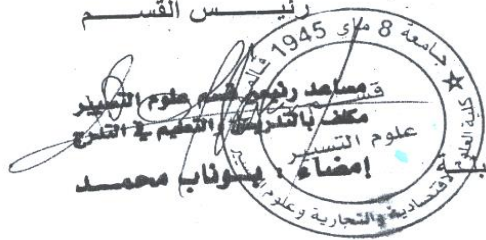 رئيس القسم
جامعة 8 ماي 1945 قالمة
قسم
علوم التسيير
كلية العلوم الاقتصادية والتجارية وعلوم التسيير
مساعد رئيس قسم علوم التسيير
مكلف بالتدريس والتعليم في التدرج
إمضاء : بوناب محمد